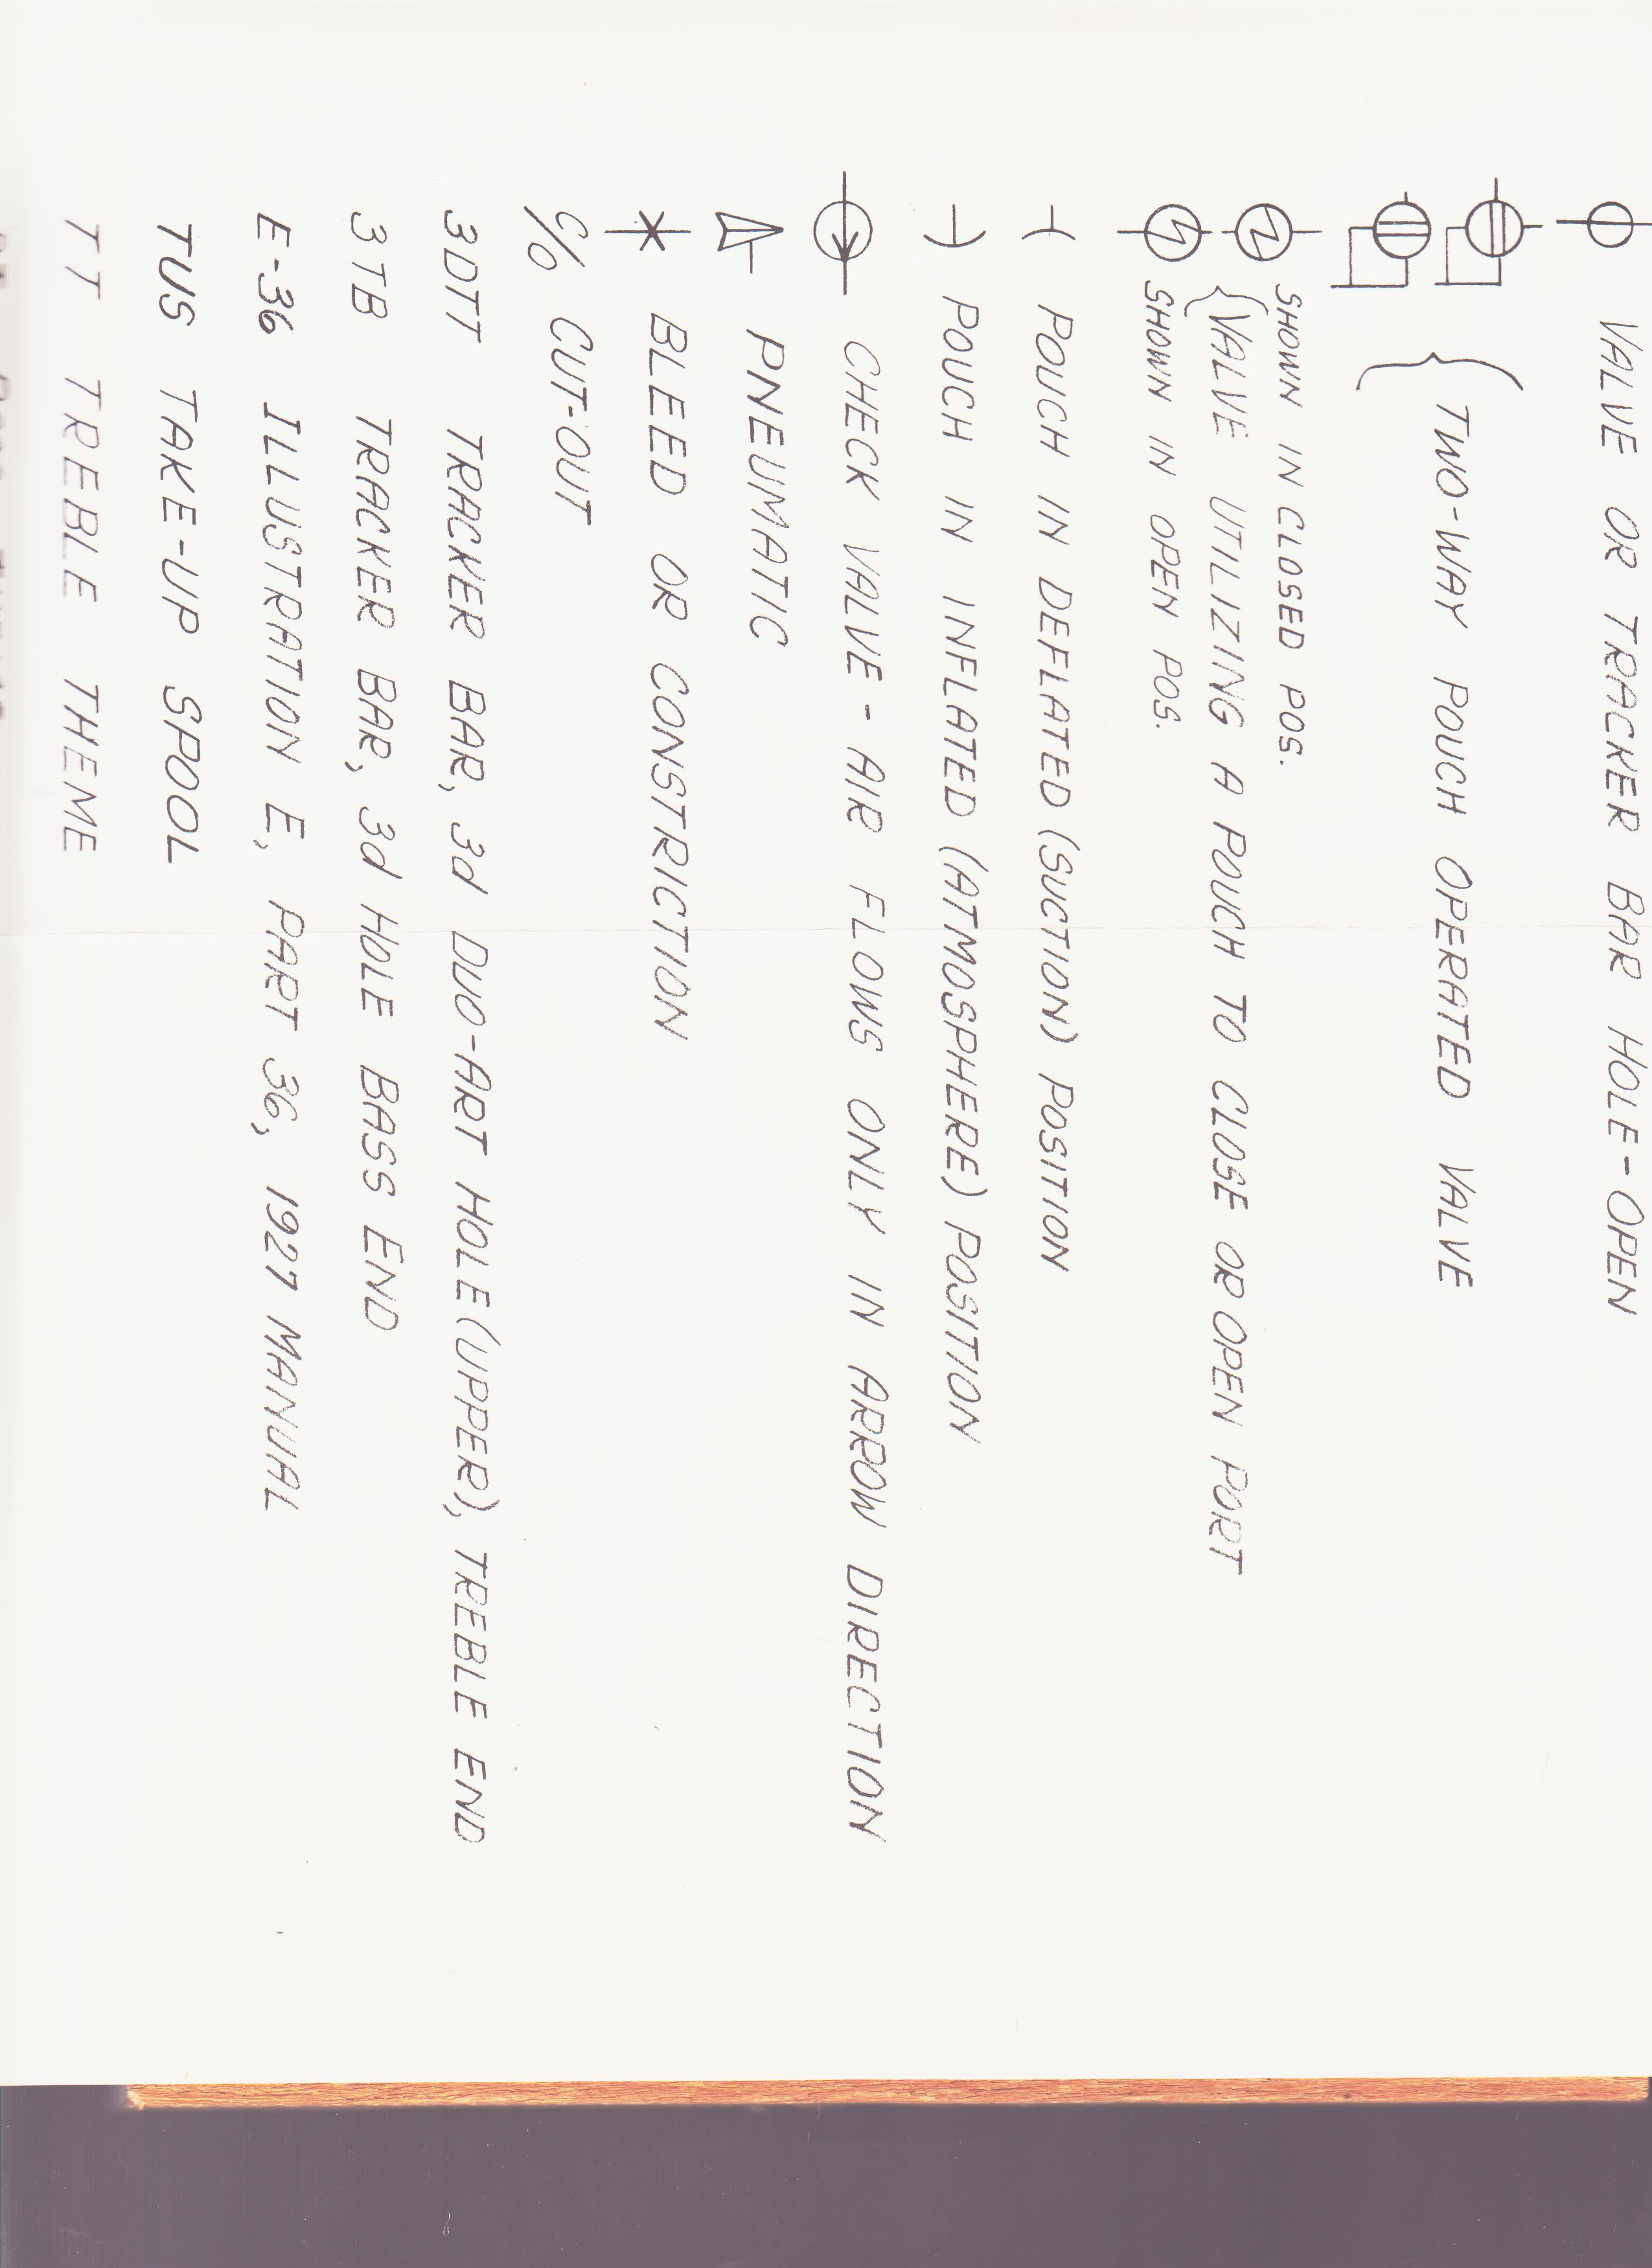 VALVE OR TRACKER BAR HOLE-OPEN
TWO-WAY POUCH OPERATED VALVE
SHOWN IN CLOSED POS.
VALVE UTILIZING A POUCH TO CLOSE OR OPEN PORT
SHOWN IN OPEN POS.
POUCH IN DEFLATED (SUCTION) POSITION
POUCH IN INFLATED (ATMOSPHERE) POSITION
CHECK VALVE - AIR FLOWS ONLY IN ARROW DIRECTION
PNEUMATIC
BLEED OR CONSTRICTION
C/O CUT-OUT
3DTT TRACKER BAR, 3d DUO-ART HOLE (UPPER), TREBLE END
3TB TRACKER BAR, 3d HOLE BASS END
E-36 ILLUSTRATION E, PART 36, 1927 MANUAL
TUS TAKE-UP SPOOL
TT TREBLE THEME